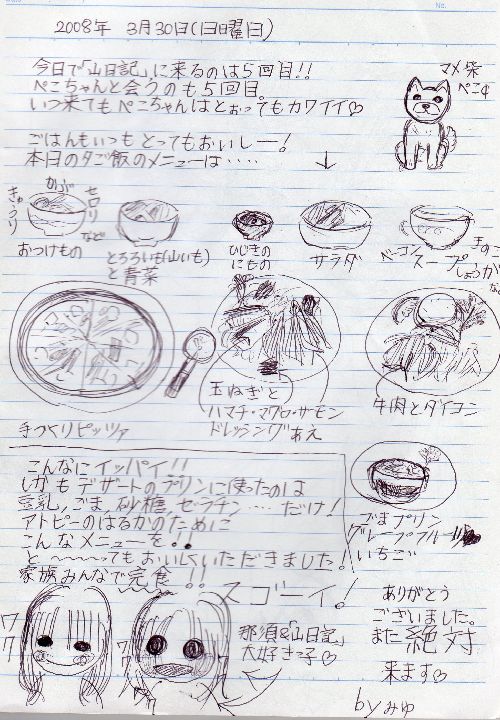 2008年 3月30日(日曜日)
今日で「山日記」に来るのは5回目!!
ぺこちゃんと会うのも5回目。
いつ来てもぺこちゃんはとぉってもカワイイ♡
マメ柴
ぺこ
ごはんもいつもとってもおいしー!
本日の夕ご飯のメニューは‥‥‥ ↓
きゅうり
かぶ
セロリ
など
おつけもの
とろろいも(山いも)
と青菜
ひじきの
にもの
サラダ
ベーコン
きのこ
スープ
しょうが
手づくりピッツァ
玉ねぎと
ハマチ・マグロ・サーモン
ドレッシングあえ
牛肉とダイコン
こんなにイッパイ!!
しかもデザートのプリンに使ったのは
豆乳,ごま,砂糖,ゼラチン‥‥だけ!
アトピーのはるかのために
こんなメニューを!!
と〜〜〜ってもおいしくいただきました!
家族みんなで完食!!
スゴーイ!
ごまプリン
グレープフルーツ
いちご
ワク
ワク
那須&「山日記」
大好きっ子♡
ありがとう
ございました。
また絶対
来ます♡
byみゆ